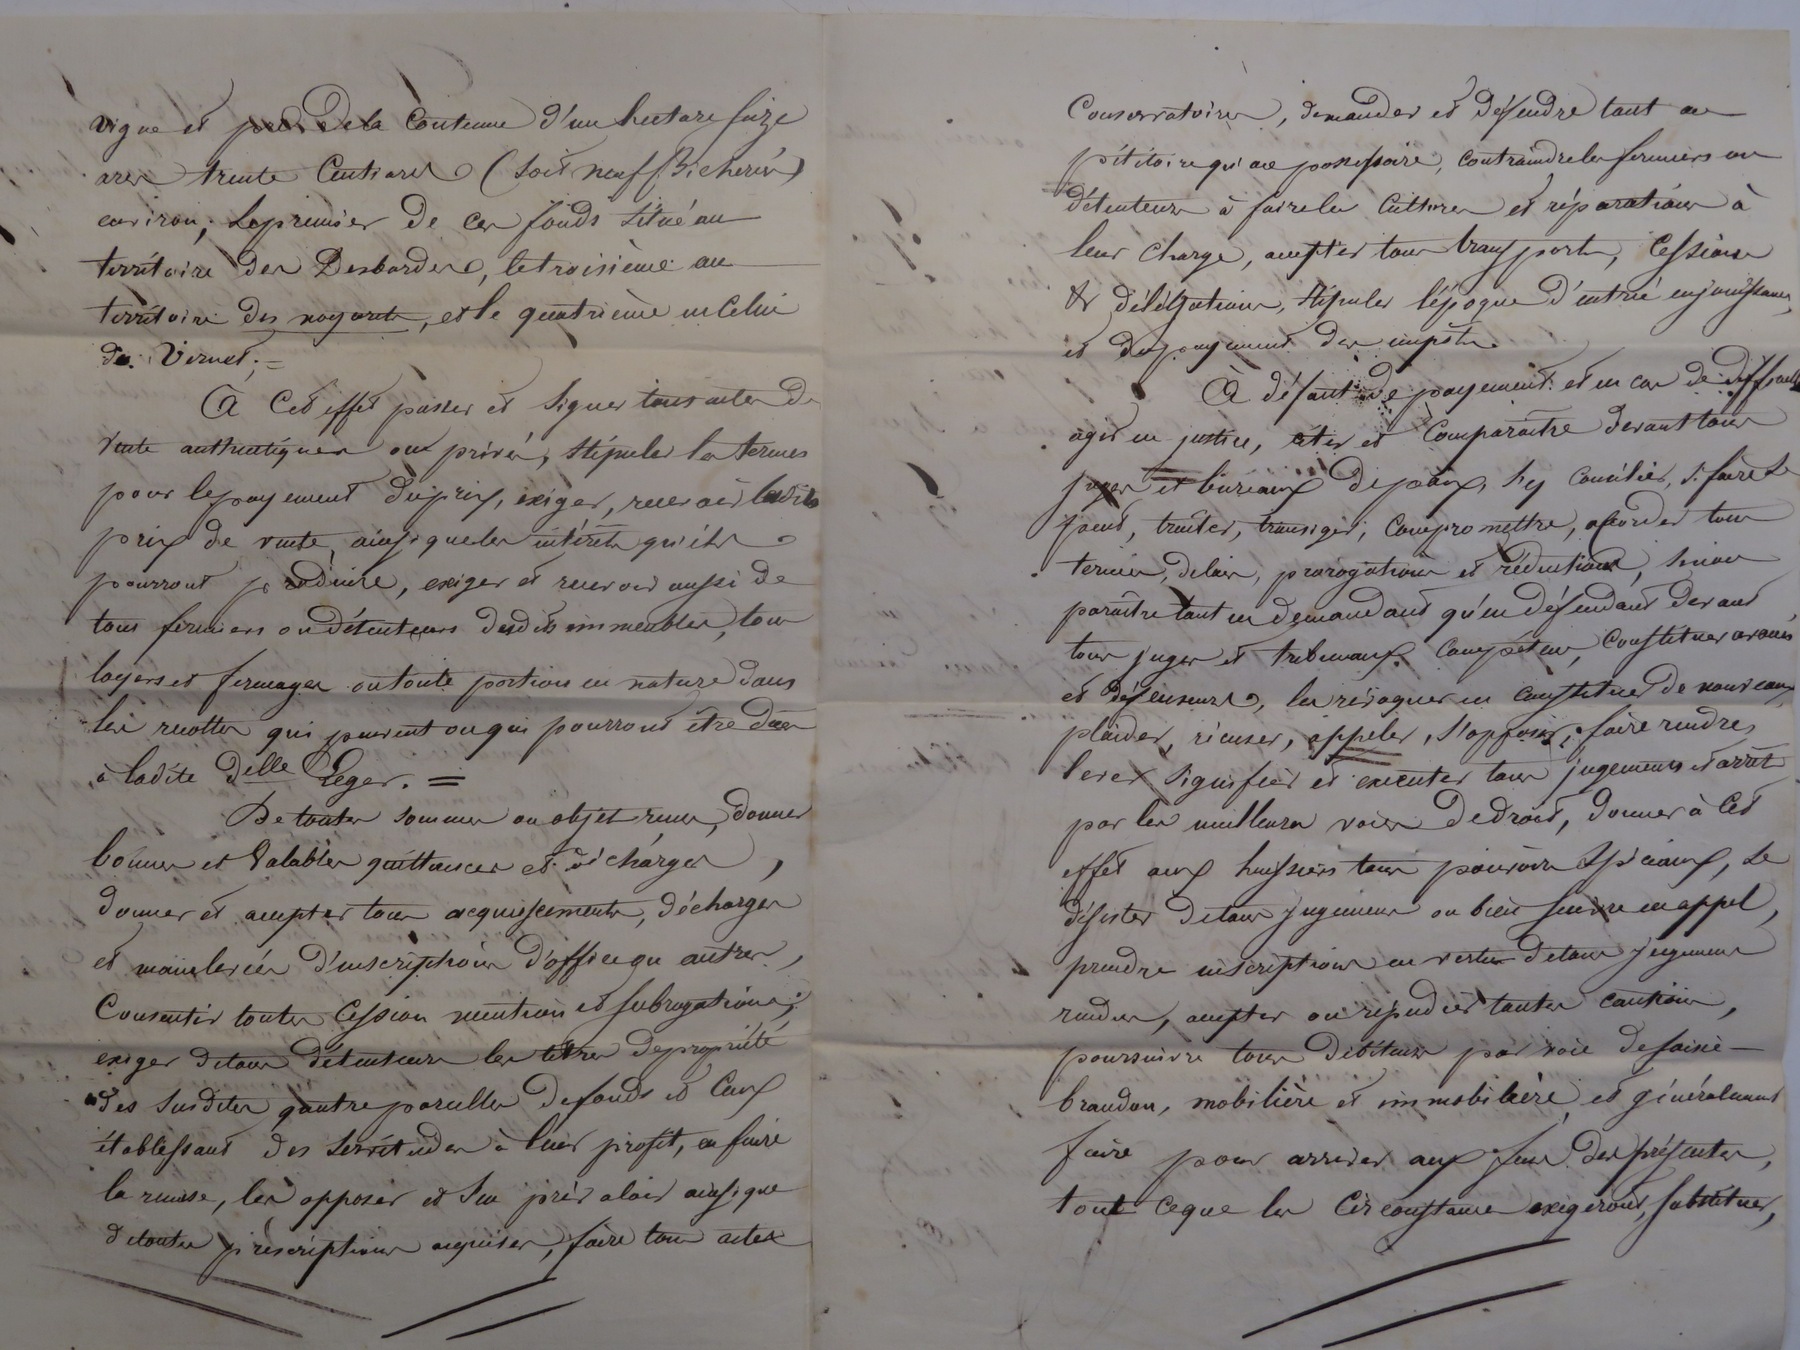 vigne et pré, de la Contenue d'un hectare seize
ares trente Centiares (soit neuf Bicherées)
environ; le premier de ces fonds situé au
territoire des Desbordes, le troisième au
territoire des noyarets, et le quatrième en Celui
du Vernet;=
À Cet effet passer et signer tous actes de
vente authentiques ou privés, stipuler les termes
pour le payement du prix, exiger, recevoir lesdits
prix de vente, ainsi que les intérêts qu'ils
pourront produire, exiger et recevoir aussi de
tous fermiers ou détenteurs desdits immeubles, tous
loyers et fermages ou toute portion en nature dans
les recoltes qui peuvent ou qui pourront être dues
à ladite Dlle Leger.=
De toutes sommes ou objet reçus, donner
bonnes et Valables quittances et décharges,
donner et accepter tous acquiescements, décharges
et mainlevées d'inscriptions d'office ou autres,
Consentir toutes Cession mention et subrogations;
exiger de tous détenteurs les titres de propriété
des susdites quatre parcelles de fonds et Ceux
établissant des servitudes à leur profit, en faire
la remise, les opposer et s'en prévaloir ainsi que
de toutes prescriptions acquises, faire tous actes
Conservatoires, demander et défendre tant au
pétitoire qu'au possessoire, contraindre les fermiers ou
détenteurs à faire les Cultures et réparations à
leur charge, accepter tous transports, Cessions
& délégations, stipuler l'époque d'entrée en jouissance,
et du payement des impôts.
À défaut de payement et en cas de difficulté
agir en justice, citer et Comparaître devant tous
juges et bureaux de paix, s'y concilier, si faire se
peut, traiter, transiger, Compromettre, accorder tous
termes, délais, prorogations et réductions, sinon
paraître tant en demandant qu'en défendant devant
tous juges et tribunaux Compétens, Constituer avoués
et défenseurs, les révoquer en constituer de nouveaux,
plaider, récuser, appeler, s'opposer, faire rendre,
lever signifier et exécuter tous jugements et arrêt
par les meilleures voies de droit, donner à Cet
effet aux huissiers tous pouvoirs spéciaux, se
désister de tous jugemens ou bien suivre en appel,
prendre inscriptions en vertu de tous jugemens
rendus, accepter ou répudier toutes cautions,
poursuivre tous débiteurs par voie de saisie-
brandon, mobilière et immobilière, et généralement
faire pour arriver aux fins des présentes,
tout ce que les Circonstances exigeront, substituer,